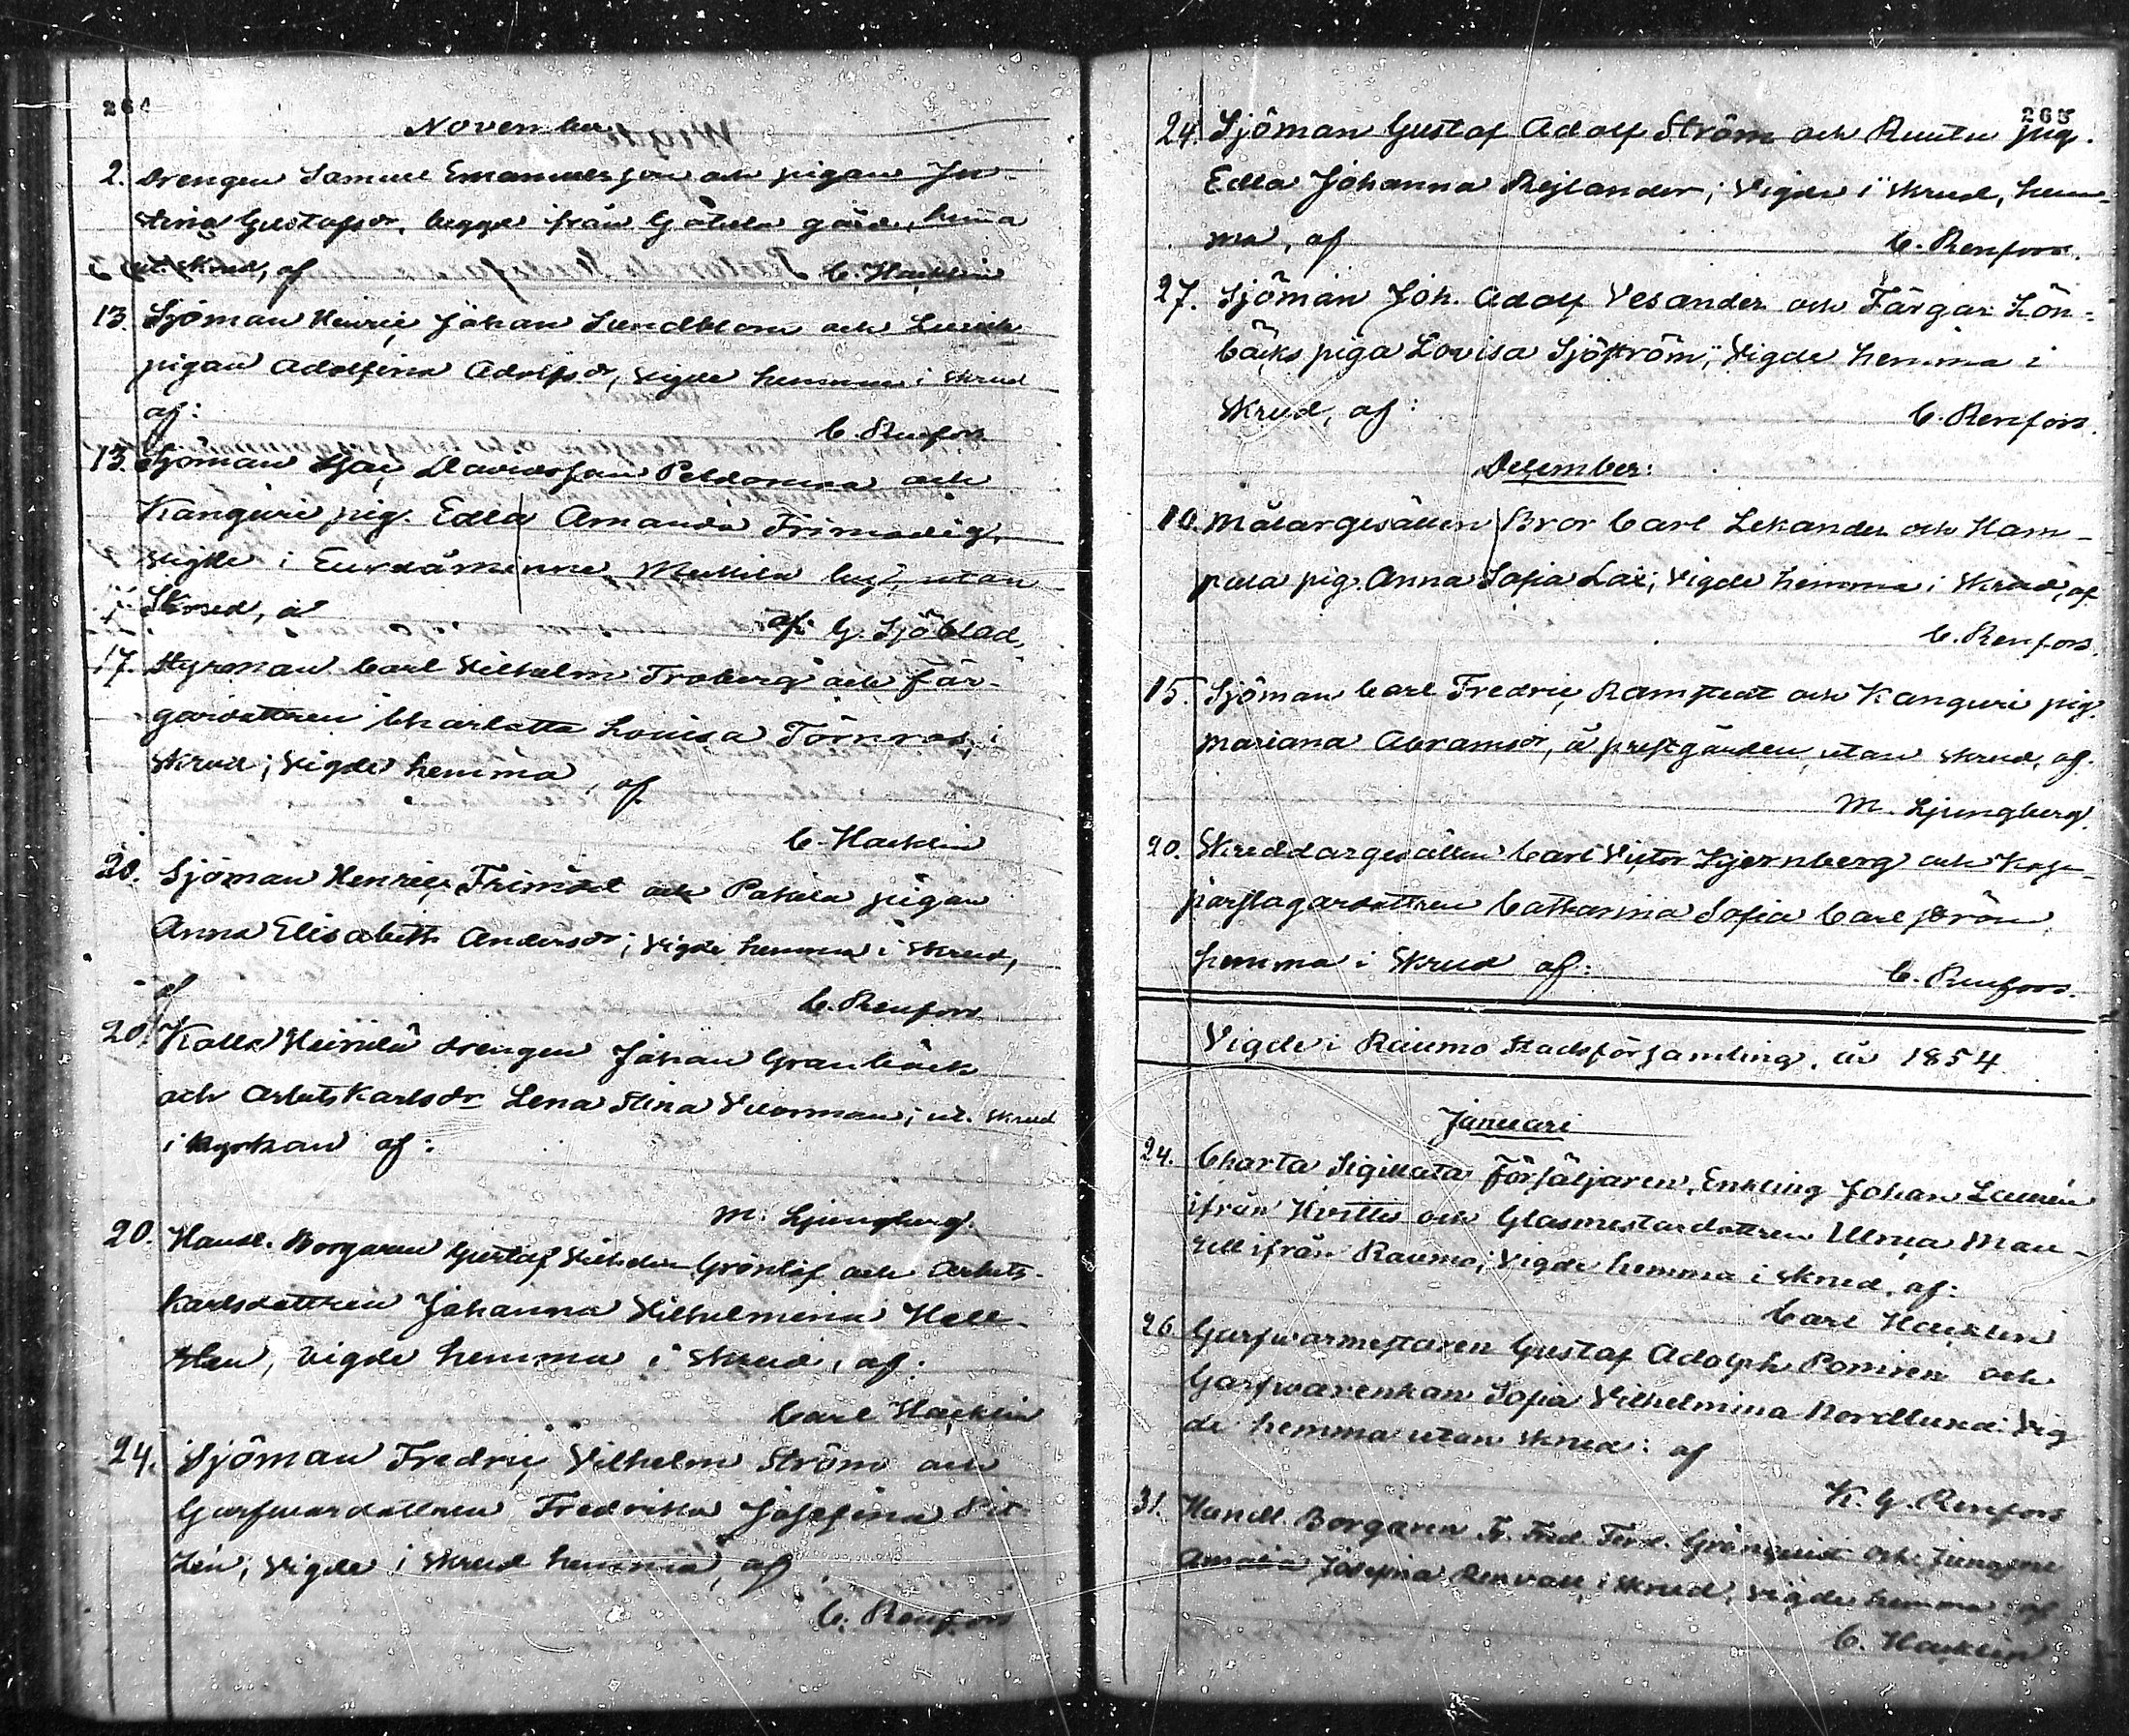 264
November
2. Drengen Samuel Emanuelsson och pigan Ju-
stina Gustafsdr, begge ifrån Götula gård, hemma
ut. skrud, af C. Hacklin
13. Sjöman Henric Johan Sundblom och
pigan Adolfina Adolfsdr, vigde hemma i skrud
af:
C. Renfors
13. Sjöman Davidsson Peldomaa och
Kanguri pig. Edla Amanda Frimodig,
vigde i Euraåminne utan
Skrud, af: G. Sjöblad,
17. Styrman Carl Vilhelm Troberg och Fär-
gardottren Charlotta Lovisa Törnros, i
Skrud; Vigde hemma, af
C. Hacklin
20. Sjöman Henric Frimodt och Pakila pigan
Anna Elisabeth Andersdr; Vigde hemma i skrud,
af
C. Renfors
20. Kalla Heinilä drengen Johan Granbäck
och Arbetskarlsdr Lena Stina Viborman; ut. skrud
i kyrkan af:
M. Ljungberg.
20. Handl. Borgaren Gustaf Vilhelm Grönlöf och Arbets-
karlsdottren Johanna Vilhelmina Hell-
sten, vigde hemma i skrud, af:
Carl Hacklin
24. Sjöman Fredric Vilhelm Ström och
Garfwardottren Fredrika Josefina
Vigde i skrud hemma, af
C. Renfors
265
24. Sjöman Gustaf Adolf Ström och Ruutu pig.
Edla Johanna Rejlander; Vigde i skrud, hem-
ma, af C. Renfors.
27. Sjöman Joh. Adolf Vesander och Färgar Lön-
bäcks piga Lovisa Sjöström; Vigde hemma i
Skrud, af: C. Renfors.
December:
10. Målargesällen Bror Carl Lekander och Ham-
pula pig. Anna Sofia Lax; Vigde hemma i Skrud, af
C. Renfors.
15. Sjöman Carl Fredric Ramstedt och Kanguri pig.
Mariana Abramsdr, å prestgården, utan skrud, af.
M. Ljungberg.
20. Skreddargesällen Carl Victor Stjernberg och Kop-
parslagardottren Catharina Sofia Carlström,
hemma i skrud af: C. Renfors.
Vigde i Raumo Stadsförsamling, år 1854
Januari
24. Charta Sigillata Försäljaren, Enkling Johan Laurén
ifrån Hvittis och Glasmestardottren Ulrica Mau-
rell ifrån Raumo; Vigde hemma i skrud, af:
Carl Hacklin
26 Garfwarmestaren Gustaf Adolph Pomrén och
Garfwarenkan Sofia Vilhelmina Nordlund: Vig
de hemma utan skrud: af
K. G. Renfors
31. Handl. Borgaren F. Fred. Ferd. Grönquist och Jungfru
Amalia Josefina Renvall, i skrud, vigde hemma af
C. Hacklin